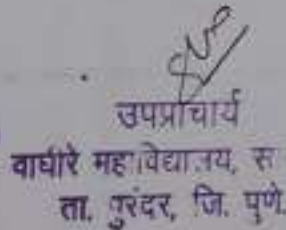 उपप्राचार्य
वाघीरे महाविद्यालय, स
ता. पुरंदर, जि. पुणे.